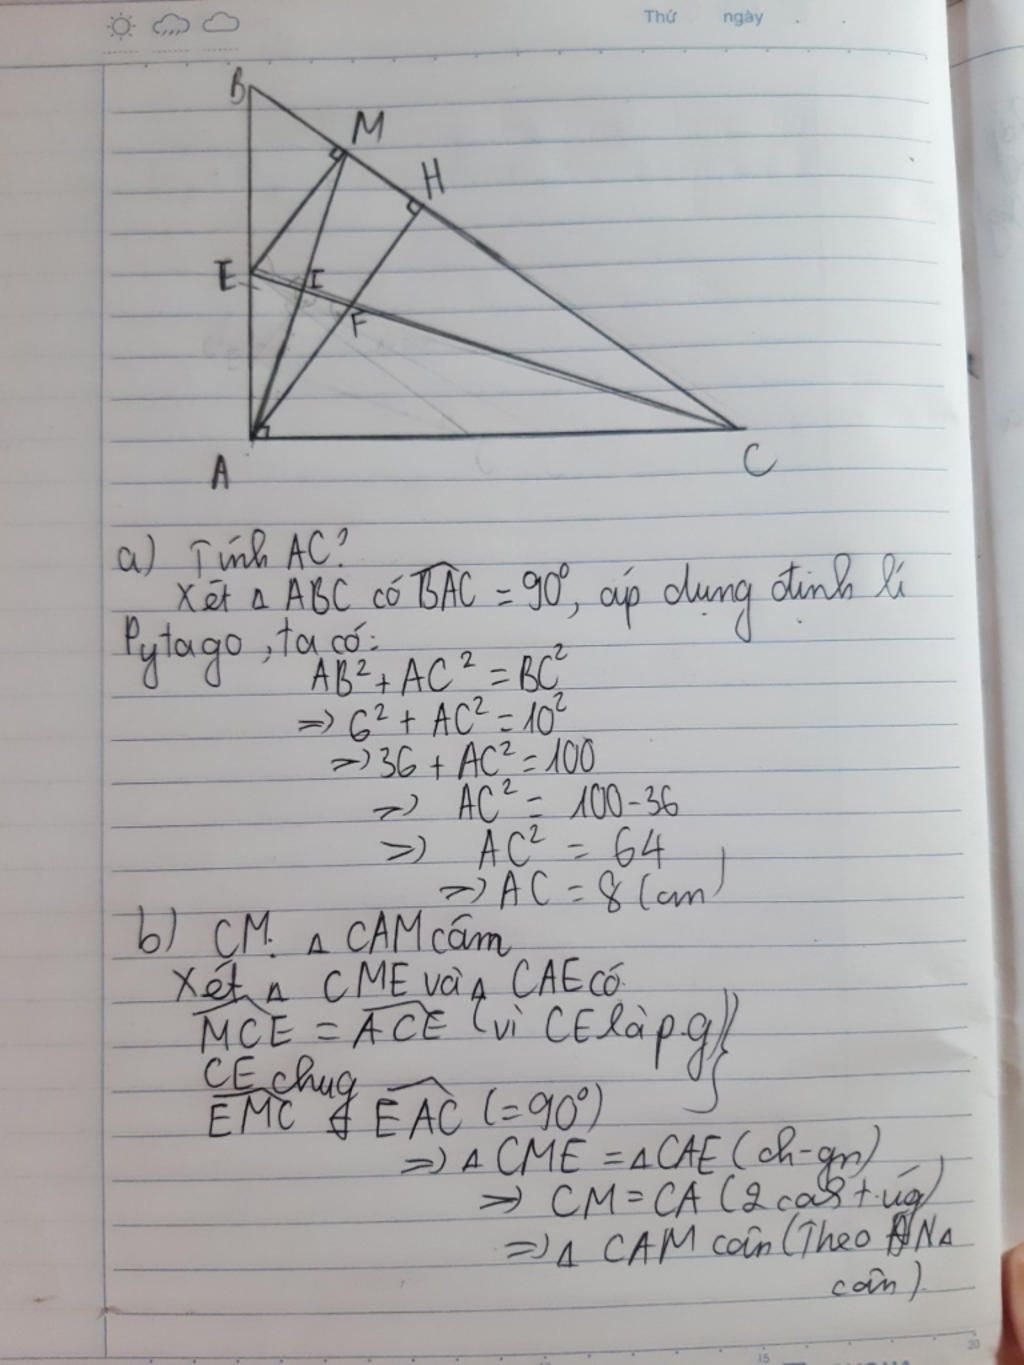 Thứ ngày . .
B
M
H
E
I
F
A
C
a) Tính AC?
Xét Δ ABC có BAC = 90°, áp dụng định lí
Pytago, ta có:
AB² + AC² = BC²
=> 6² + AC² = 10²
=> 36 + AC² = 100
=> AC² = 100-36
=> AC² = 64
=> AC = 8 (cm)
b) CM: Δ CAM cấm
Xét Δ CME và Δ CAE có
MCE = ACE (vì CE là p.g)
CE chug
EMC EAC (=90°)
=> Δ CME = Δ CAE (ch-gn)
=> CM = CA (2 cah t.ứg)
=> Δ CAM cân (Theo ĐN Δ
cân).
15
20